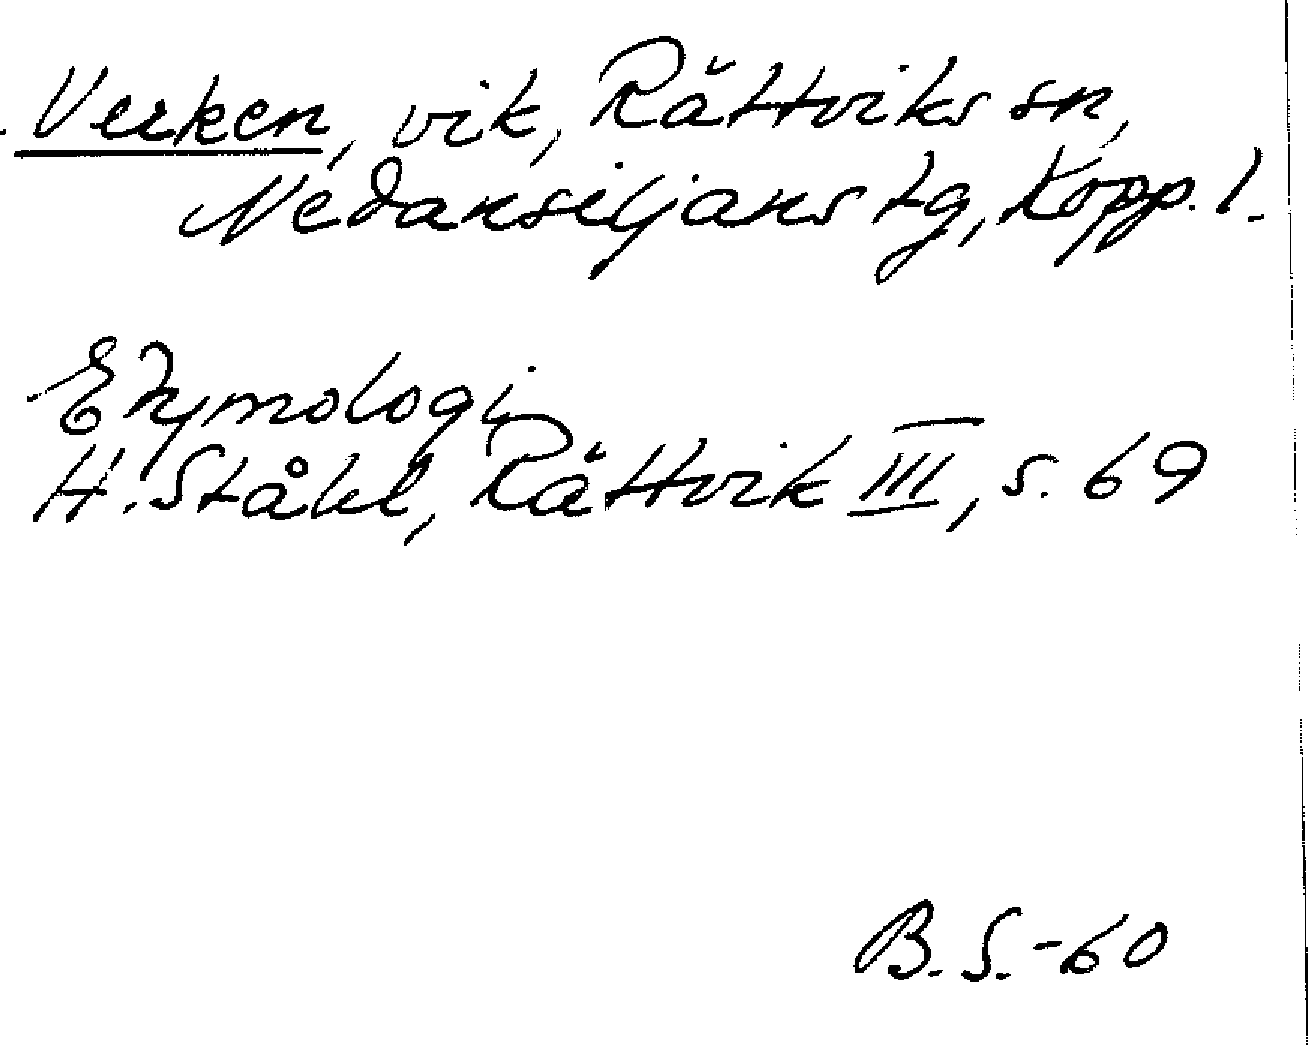 Verken, vik, Rättviks sn,
Nedansiljans tg, Kopp. l.
Etymologi
H. Ståhl, Rättvik III, s. 69
B. S. -60